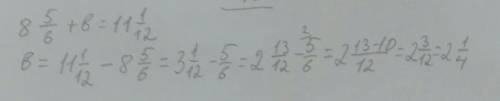 8 5/6 + в = 11 1/12
в = 11 1/12 - 8 5/6 = 3 1/12 - 5/6 = 2 13/12 - 5/6 ² = 2 13-10/12 = 2 3/12 = 2 1/4